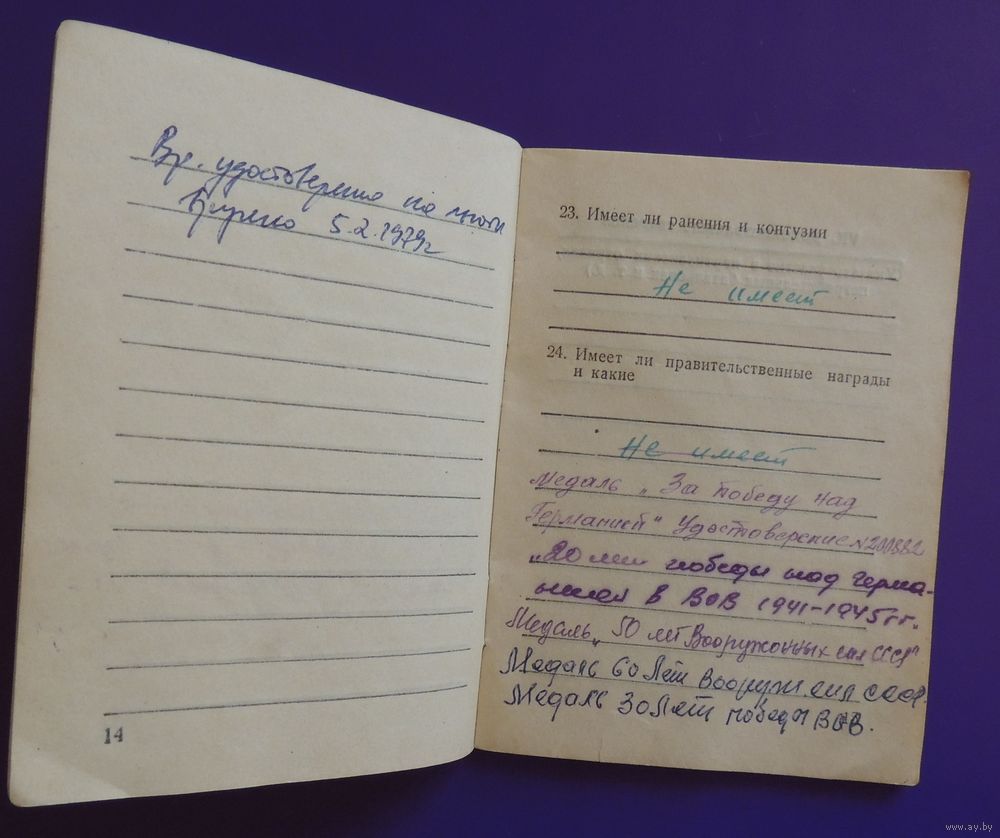 Вр. удостоверение на
5.2.1979г
14
23. Имеет ли ранения и контузии
Не имеет
24. Имеет ли правительственные награды
и какие
Не имеет
Медаль „За победу над
Германией" Удостоверение №
„20 лет победы над Герма-
нией в ВОВ 1941-1945гг.
Медаль „50 лет Вооруженных сил СССР"
Медаль 60 лет Вооруж сил СССР.
Медаль 30 лет победы ВОВ.
www.ay.by